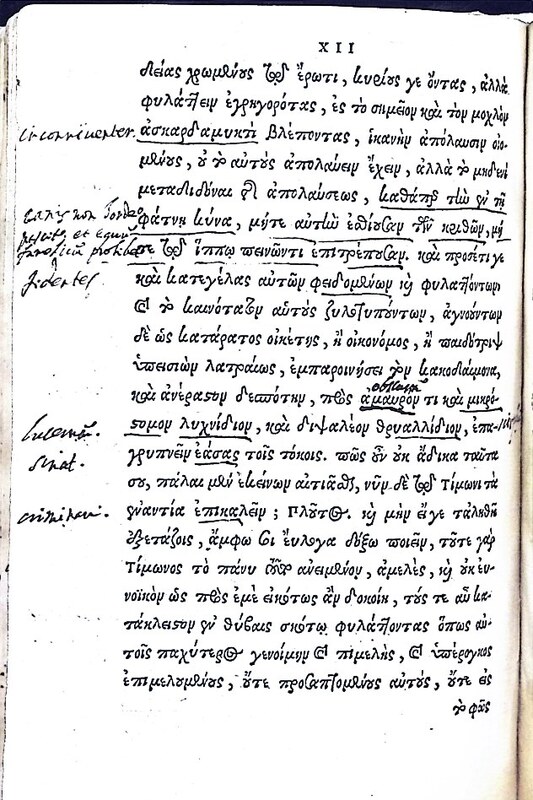 XII
δείας χρωμένους τῷ ἔρωτι, κυρίους γε ὄντας, ἀλλὰ
φυλάττειν ἐγρηγορότας, ἐς τὸ σημεῖον καὶ τὸν μοχλὸν
ἀσκαρδαμυκτὶ βλέποντας, ἱκανὴν ἀπόλαυσιν οἰο-
μένους, οὐ τὸ αὐτοὺς ἀπολαύειν ἔχειν, ἀλλὰ τὸ μηδενὶ
μεταδιδόναι τῆς ἀπολαύσεως, καθάπερ τὴν ἐν τῇ
φάτνῃ κύνα, μήτε αὐτὴν ἐσθίουσαν τῶν κριθῶν, μή
τε τῷ ἵππῳ πεινῶντι ἐπιτρέπουσαν. καὶ προσέτι γε
καὶ κατεγέλας αὐτῶν φειδομένων καὶ φυλαττόντων
καὶ τὸ καινότατον αὑτοὺς ζηλοτυπούντων, ἀγνοούντων
δὲ ὡς κατάρατος οἰκέτης, ἢ οἰκονόμος, ἢ παιδότριψ
ὑπεισιὼν λατραίως, ἐμπαροινήσει τὸν κακοδαίμονα,
καὶ ἀνέραστον δεσπότην, πρὸς ἀμαυρόν τι καὶ μικρό-
στομον λυχνίδιον, καὶ διψαλέον θρυαλλίδιον, ἐπα-
γρυπνεῖν ἐάσας τοῖς τόκοις. πῶς οὖν οὐκ ἄδικα ταῦτα
σου, πάλαι μὲν ἐκείνων αἰτιᾶσθαι, νῦν δὲ τῷ Τίμωνι τὰ
ἐναντία ἐπικαλεῖν; Πλοῦτος. καὶ μὴν εἴγε τἀληθῆ
ἐξετάζοις, ἄμφω σοι εὔλογα δόξω ποιεῖν, τοῦτε γὰρ
Τίμωνος τὸ πάνυ τοῦτο ἀνειμένον, ἀμελὲς, καὶ οὐκ εὐ-
νοϊκὸν ὡς πρὸς ἐμὲ εἰκότως ἂν δοκοίη, τούς τε αὖ κα-
τάκλειστον ἐν θύραις σκότῳ φυλάττοντας ὅπως αὐ-
τοῖς παχύτερος γενοίμην καὶ πιμελὴς, καὶ ὑπέρογκος
ἐπιμελουμένους, οὔτε προσαπτομένους αὐτούς, οὔτε ἐς
τὸ φῶς